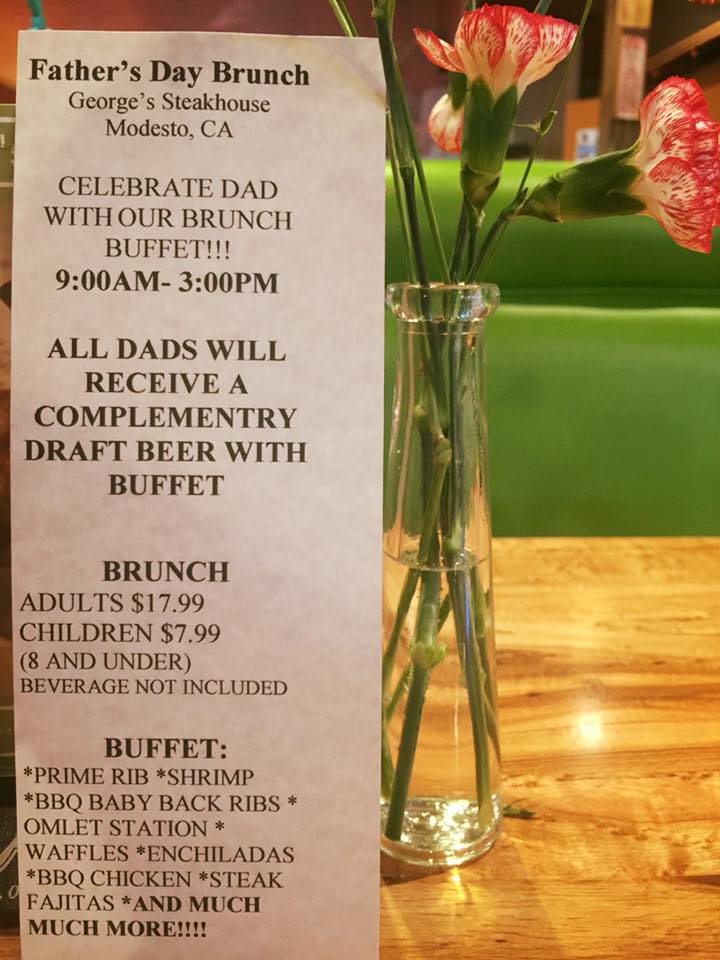 Father's Day Brunch
George's Steakhouse
Modesto, CA
CELEBRATE DAD
WITH OUR BRUNCH
BUFFET!!!
9:00AM- 3:00PM
ALL DADS WILL
RECEIVE A
COMPLEMENTRY
DRAFT BEER WITH
BUFFET
BRUNCH
ADULTS $17.99
CHILDREN $7.99
(8 AND UNDER)
BEVERAGE NOT INCLUDED
BUFFET:
*PRIME RIB *SHRIMP
*BBQ BABY BACK RIBS *
OMLET STATION *
WAFFLES *ENCHILADAS
*BBQ CHICKEN *STEAK
FAJITAS *AND MUCH
MUCH MORE!!!!